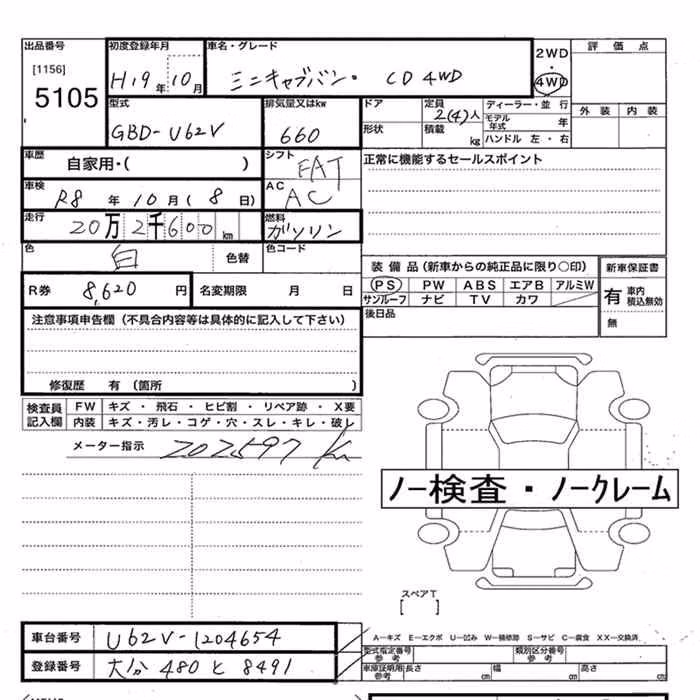 出品番号 初度登録年月 車名・グレード 2WD ・ 4WD 評価点
[1156] 5105 H19年10月 ミニキャブバン・ CD 4WD 外装 内装
型式 排気量又はkw ドア 定員 2(4)人 ディーラー・並行
GBD-U62V 660 形状 積載 kg モデル年式 年 ハンドル 左・右
車歴 自家用・( ) シフト FAT 正常に機能するセールスポイント
車検 R8年10月(8日) AC AC
走行 20万2千600km 燃料 ガソリン
色 白 色替 色コード
装備品(新車からの純正品に限り○印) 新車保証書
R券 8,620円 名変期限 月 日 PS PW ABS エアB アルミW 有 車内積込無効
サンルーフ ナビ TV カワ
注意事項申告欄(不具合内容等は具体的に記入して下さい) 後日品 無
修復歴 有(箇所 )
検査員記入欄 FW キズ・飛石・ヒビ割・リペア跡・X要
内装 キズ・汚レ・コゲ・穴・スレ・キレ・破レ
メーター指示 202597 km
ノー検査・ノークレーム
スペアT
[ ]
車台番号 U62V-1204654 A―キズ E―エクボ U―凹み W―補修跡 S―サビ C―腐食 XX―交換済
型式指定番号 参考 類別区分番号 参考
登録番号 大分 480 と 8491 車庫証明用 参考 長さ cm 幅 cm 高さ cm